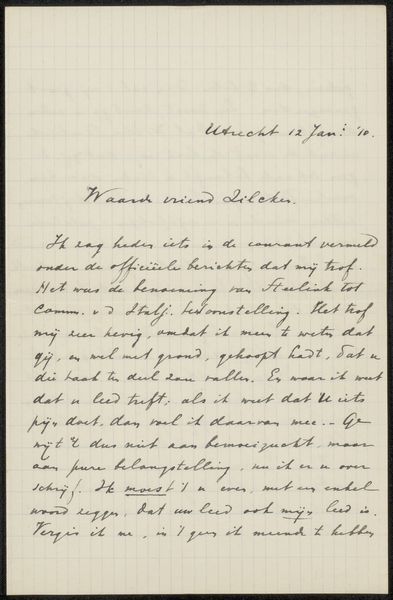 Utrecht 12 Jan: '10.
Waarde vriend Zilcken.
Ik zag heden iets in de courant vermeld
onder de officiëele berichten dat mij trof.
Het was de benoeming van Steelink tot
Comm. v d Italj. tentoonstelling. Het trof
mij zeer hevig, omdat ik meen te weten dat
gij, en wel met grond, gehoopt hadt, dat u
die taak ten deel zou vallen. En waar ik weet
dat u leed treft; als ik weet dat U iets
pijn doet, dan voel ik daarvan mee.. Ge
wijt 't dus niet aan bemoeizucht, maar
aan pure belangstelling, nu ik er u over
schrijf. Ik moest 't u even, met een enkel
woord zeggen, dat uw leed ook mijn leed is.
Vergis ik me, in 't geen ik meende te hebben